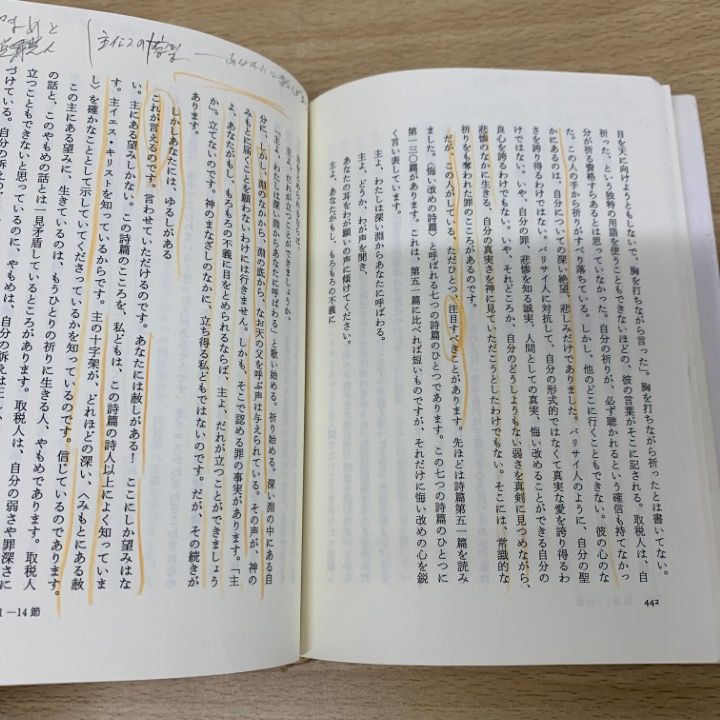 目を天に向けようともしないで、胸を打ちながら言った」。胸を打ちながら祈ったとは書いてない。
祈った、という独特の用語を使うこともできないほどの、彼の言葉がそこに記される。取税人は、自
分が祈る資格すらあるとは思っていなかった。自分の祈りが、必ず聴かれるという確信も持てなかっ
た。この人の手から祈りがすべり落ちている。しかし、他のどこに行くこともできない。彼の心のな
かにあるのは、自分についての深い絶望、悲しみだけでありました。パリサイ人のように、自分の聖
さを誇り得るわけではない。パリサイ人に対抗して、自分の形式的ではなくて真実な愛を誇り得るわ
けではない。いや、それどころか、自分のどうしようもない弱さを真剣に見つめながら、
悲惨のなかに生きる、自分の真実さを神に見ていただこうとしたわけでもない。そこには、常識的な
祈りをも奪われた罪のこころがあるのです。
だが、この人がしている、ただひとつ注目すべきことがあります。先ほどは詩篇第五一篇を読み
ました。〈悔い改めの詩篇〉と呼ばれる七つの詩篇のひとつであります。この七つの詩篇のひとつに
第一三〇篇があります。これは、第五一篇に比べれば短いものですが、それだけに悔い改めの心を鋭
く言い表しています。
主よ、わたしは深い淵からあなたに呼ばわる。
主よ、どうか、わが声を聞き、
あなたの耳をわが願いの声に傾けてください。
主よ、あなたがもし、もろもろの不義に
442
主よ、だれが立つことができましょうか。
「主よ、わたしは深い淵からあなたに呼ばわる」と歌い始める。祈り始める。深い淵の中にある自
分に、しかし、淵のなかから、淵の底から、なお天の父を呼ぶ声は与えられている。その声が、神の
みもとに届くことを願わないわけには行きません。しかも、そこで認める罪の事実があります。「主
よ、あなたがもし、もろもろの不義に目をとめられるならば、主よ、だれが立つことができましょう
か」。立てないのです。神のまなざしのなかに、立ち得る私どもではないのです。だが、その続きが
あります。
しかしあなたには、ゆるしがある
これが言えるのです。言わせていただけるのです。あなたには赦しがある！ ここにしか望みはな
い。主にある望みしかない。この詩篇のこころを、私どもは、この詩篇の詩人以上によく知っていま
す。主イエス・キリストを知っているからです。主の十字架が、どれほどの深い、〈みもとにある赦
し〉を確かなこととして示していてくださっているかを知っているのです。信じているのであります。
この主にある望みに、生きているのは、もうひとりの祈りに生きる人、やもめであります。取税人
の話と、このやもめの話とは一見矛盾しているところがあります。取税人は、自分の弱さや罪深さに
立つこともできないと思っているのに、やもめは、自分の訴えは正し
づけている。自分の訴え
1－14節